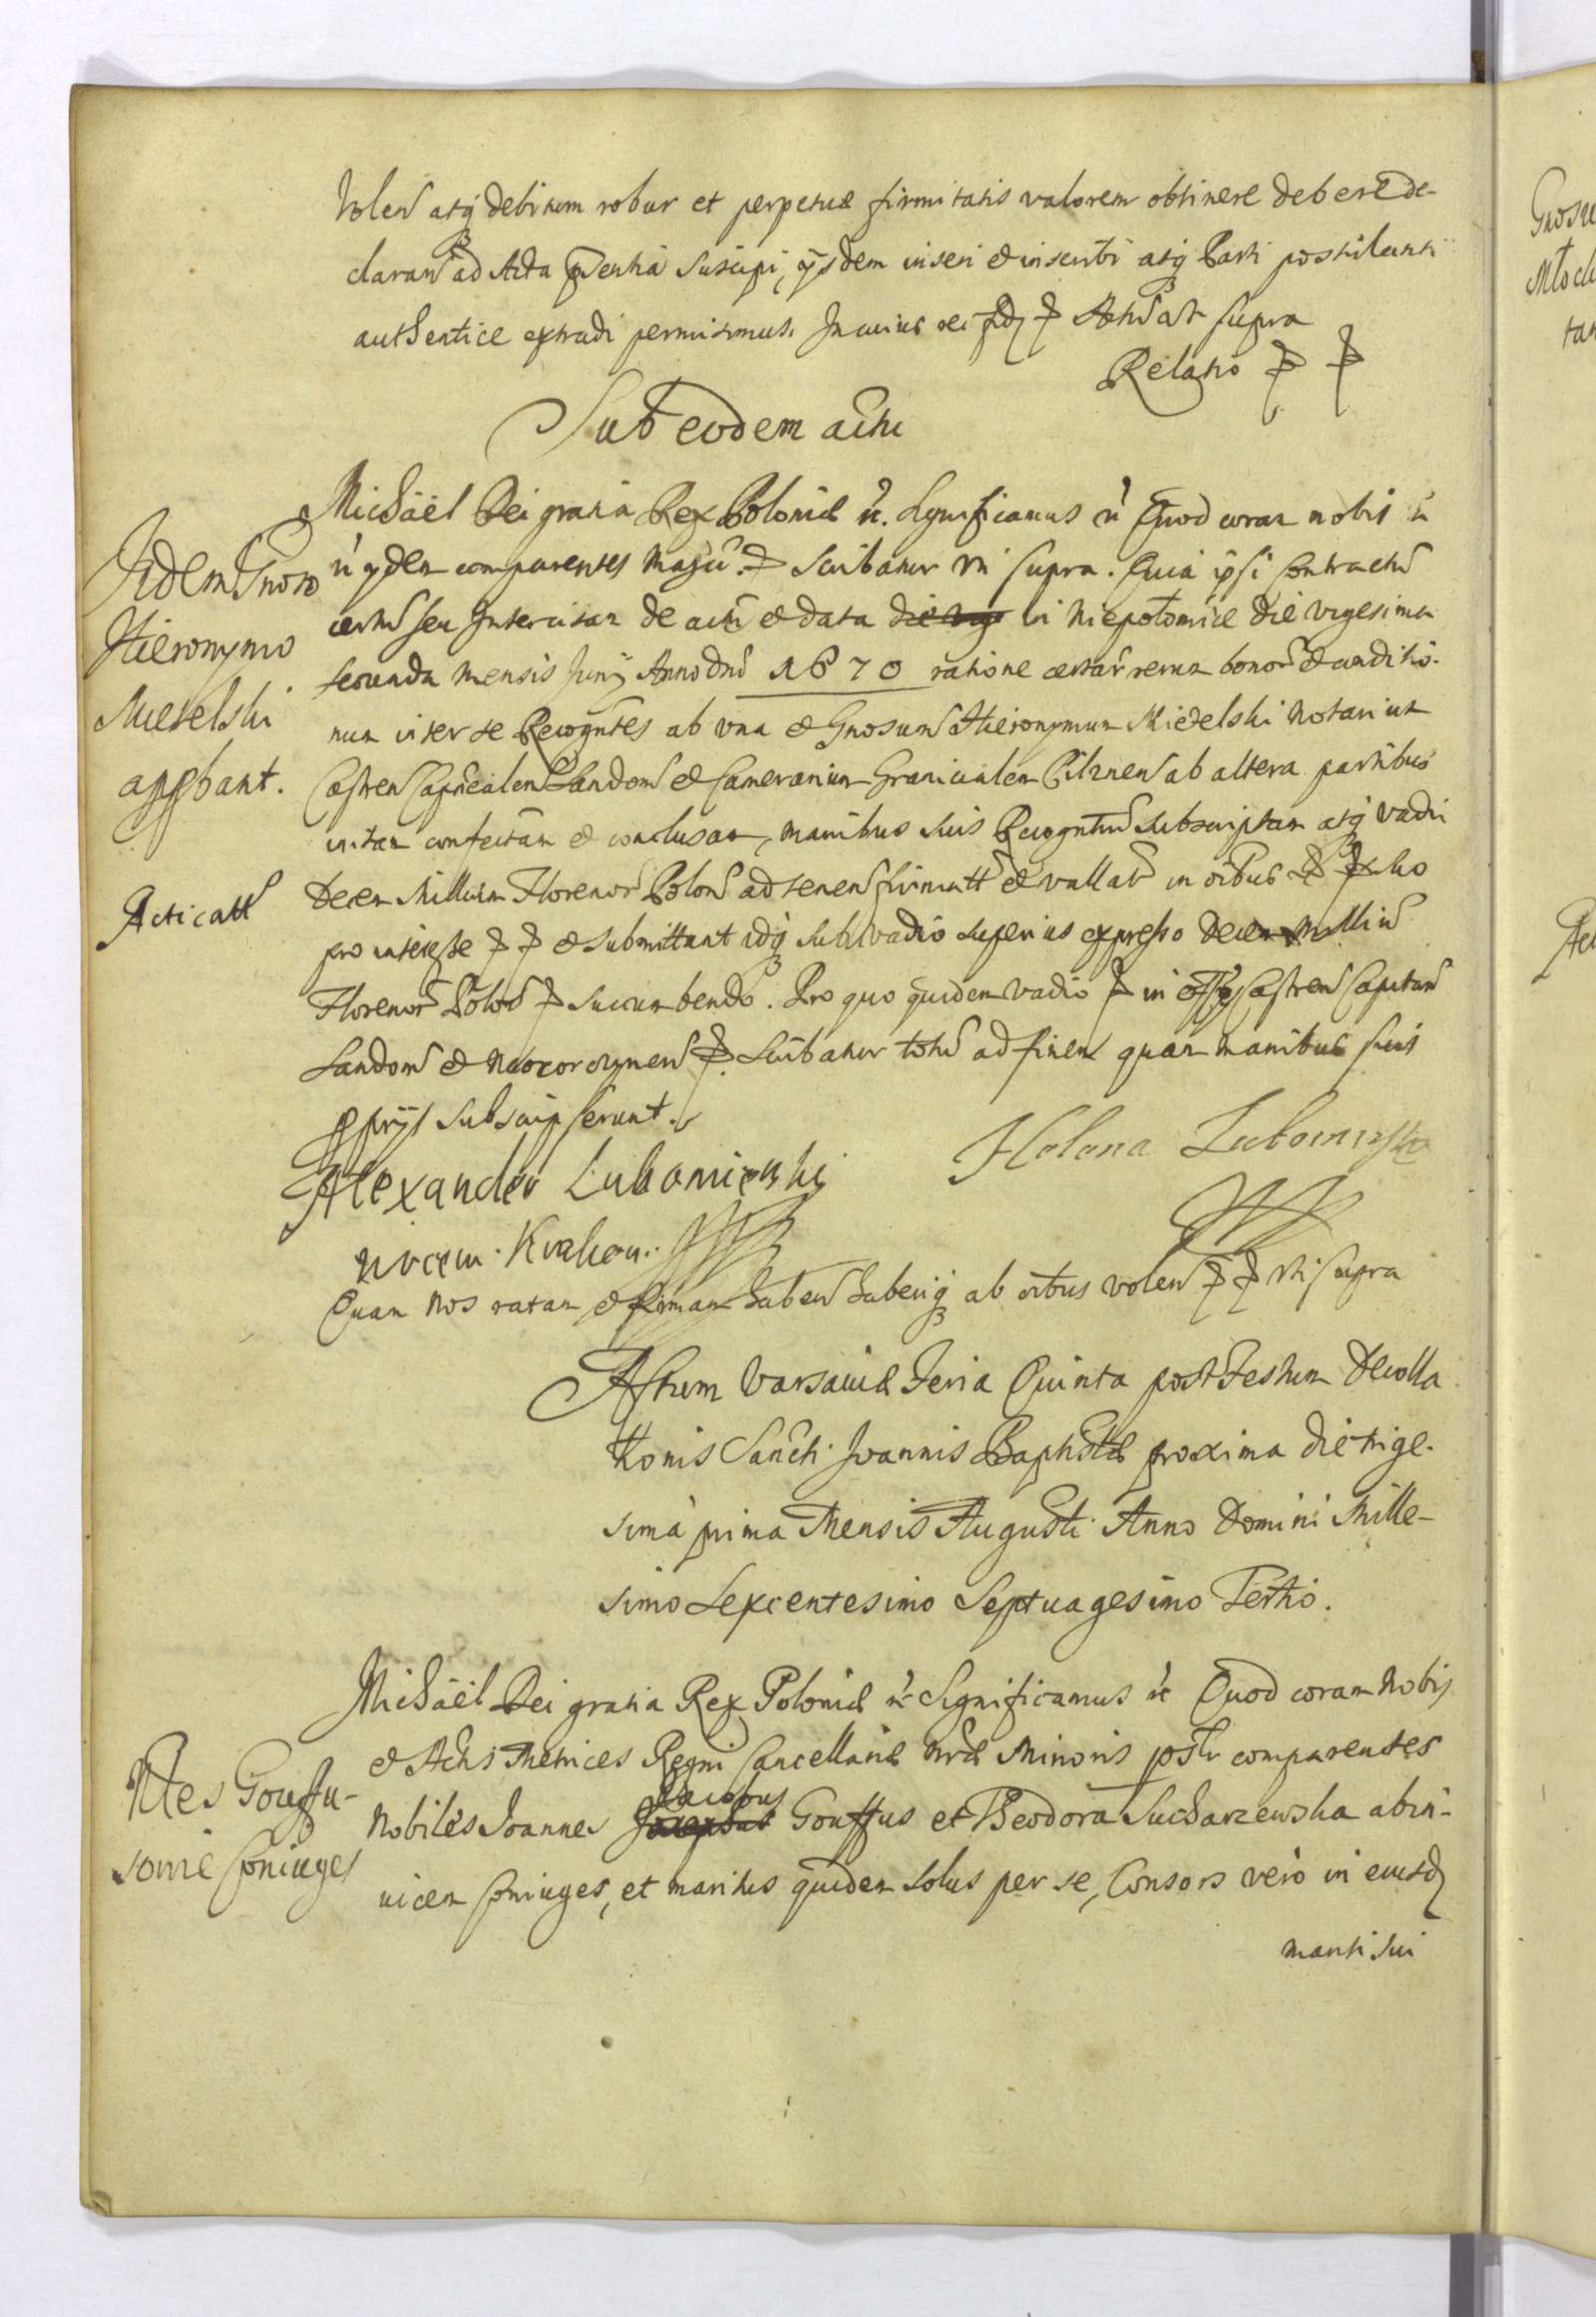 volen atq debitum robur et perpetuæ firmitatis valorem obtinere debere de-
claran ad Acta pntia suscipi, ijsdem inseri et inscribi atq Parti postulanti
authentice extradi permisimus. In cuius rei fid Act ut supra
Relatio
Sub eodem actu
Michäel Dei gratia Rex Poloniæ &. Significamus & Quod coram nobis &
& ijdem comparentes Magci. Scribatur ut supra. Quia ipsi Contractu
certu seu Intercisam de actu et data die vig in Niepołomice die vigesima
secunda mensis Junij Anno dni 1670 ratione certar rerum bonor et conditio-
num inter se Recogntes ab una et Gnosum Hieronymum Mietelski Notarium
Castren Capnealem Sandom et Camerarium Granicialem Pilznen ab altera partibus
initam confectam et conclusam, manibus suis Recogntiu subscriptam atq vadii
Decem Millium Florenor Polon ad tenen firmatt et vallat in oibus ex ho
pro interesse et submittunt idq sub vadio superius expresso Decem Milliu
Florenor Polon succumbendo. Pro quo quidem vadio in offo Castren Capitan
Sandom et Novocorczynen Scribatur totu ad finem quam manibus suis
pprijs subscripserunt.
Alexander Lubomirski
Helena Lubomirska
Quam Nos ratam et firmam haben haberiq ab oibus volen uti supra
Actum Varsaviæ Feria Quinta post Festum Decolla
tionis Sancti Joannis Baptistæ proxima die trige-
sima prima Mensis Augusti Anno Domini Mille-
simo Sexcentesimo Septuagesimo Tertio.
Michäel Dei gratia Rex Poloniæ & Significamus & Quod coram Nobis
et Actis Metrices Regni Cancellariæ nræ Minoris pstr comparentes
Nobiles Joannes Jacobus Gouffus et Theodora Sucharzewska abin-
uicem Coniuges, et maritus quidem solus per se, Consors vero in eiusd
mariti sui
Iidem Gnoso
Hieronymo
Mietelski
appbant.
Acticatt
Nbles Gouffu-
sowie Coniuges